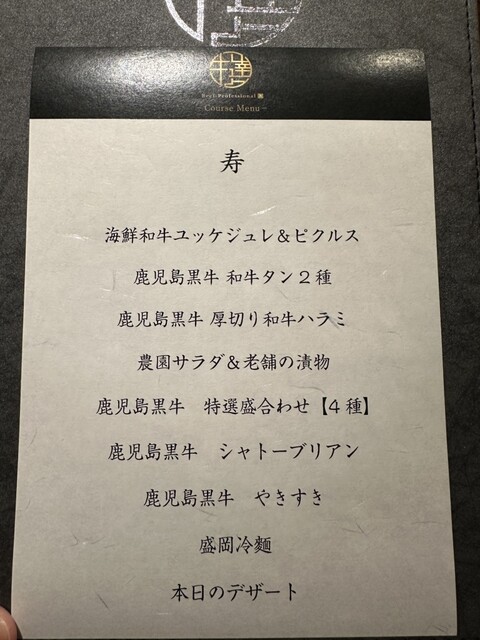 牛達人
Beef Professional
-Course Menu-
寿
海鮮和牛ユッケジュレ＆ピクルス
鹿児島黒牛 和牛タン２種
鹿児島黒牛 厚切り和牛ハラミ
農園サラダ＆老舗の漬物
鹿児島黒牛　特選盛合わせ【４種】
鹿児島黒牛　シャトーブリアン
鹿児島黒牛　やきすき
盛岡冷麵
本日のデザート